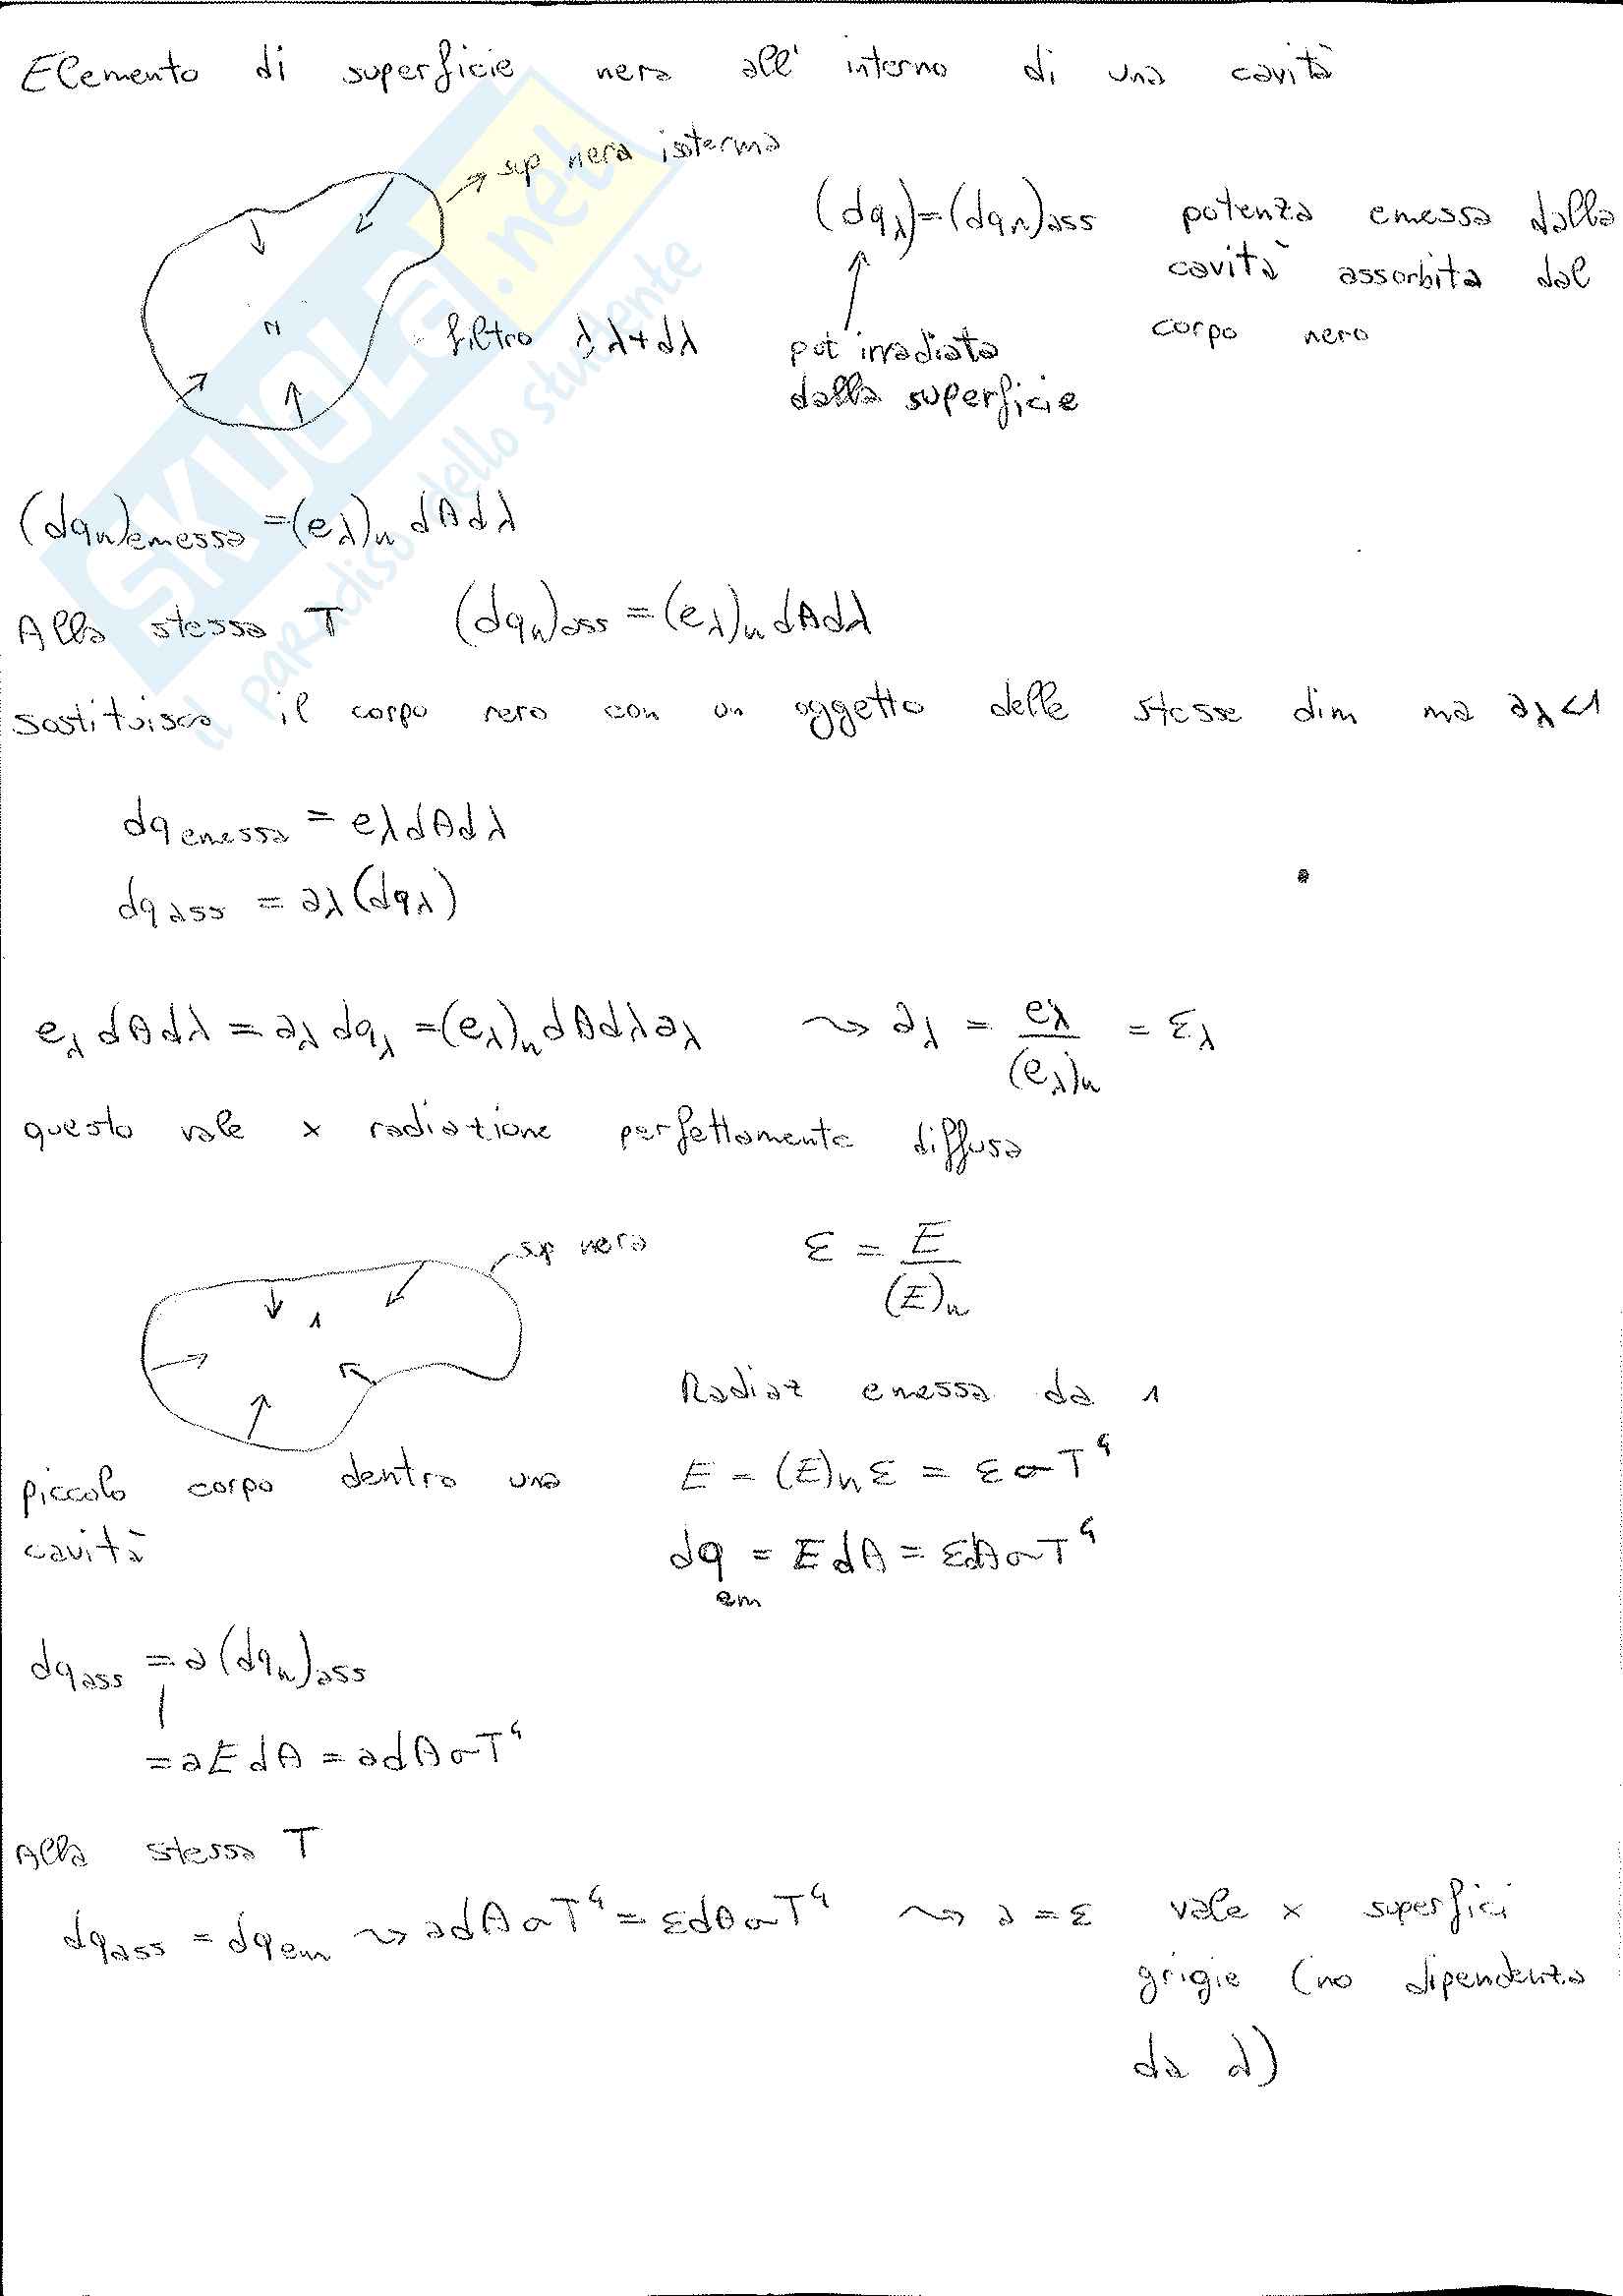 Elemento di superficie nera all' interno di una cavità
→ sup nera isoterma
n
filtro λ, λ+dλ
(dqλ)=(dqn)ass potenza emessa dalla
cavità assorbita dal
corpo nero
pot irradiata
dalla superficie
(dqn)emessa =(eλ)n dAdλ
Alla stessa T (dqn)ass = (eλ)n dAdλ
sostituisco il corpo nero con un oggetto delle stesse dim ma aλ<1
dq emessa = eλdAdλ
dq ass = aλ(dqλ)
eλ dAdλ = aλ dqλ =(eλ)n dAdλ aλ ⇝ aλ = eλ/(eλ)n = ελ
questo vale x radiazione perfettamente diffusa
sup nera
1
ε = E/(E)n
Radiaz emessa da 1
piccolo corpo dentro una
cavità
E = (E)n ε = εσT⁴
dq em = EdA = εdAσT⁴
dqass = a(dqn)ass
= aEdA = adAσT⁴
Alla stessa T
dqass = dqem ⇝ adAσT⁴ = εdAσT⁴ ⇝ a = ε vale x superfici
grigie (no dipendenza
da λ)
SKUOLA.net
il paradiso dello studente